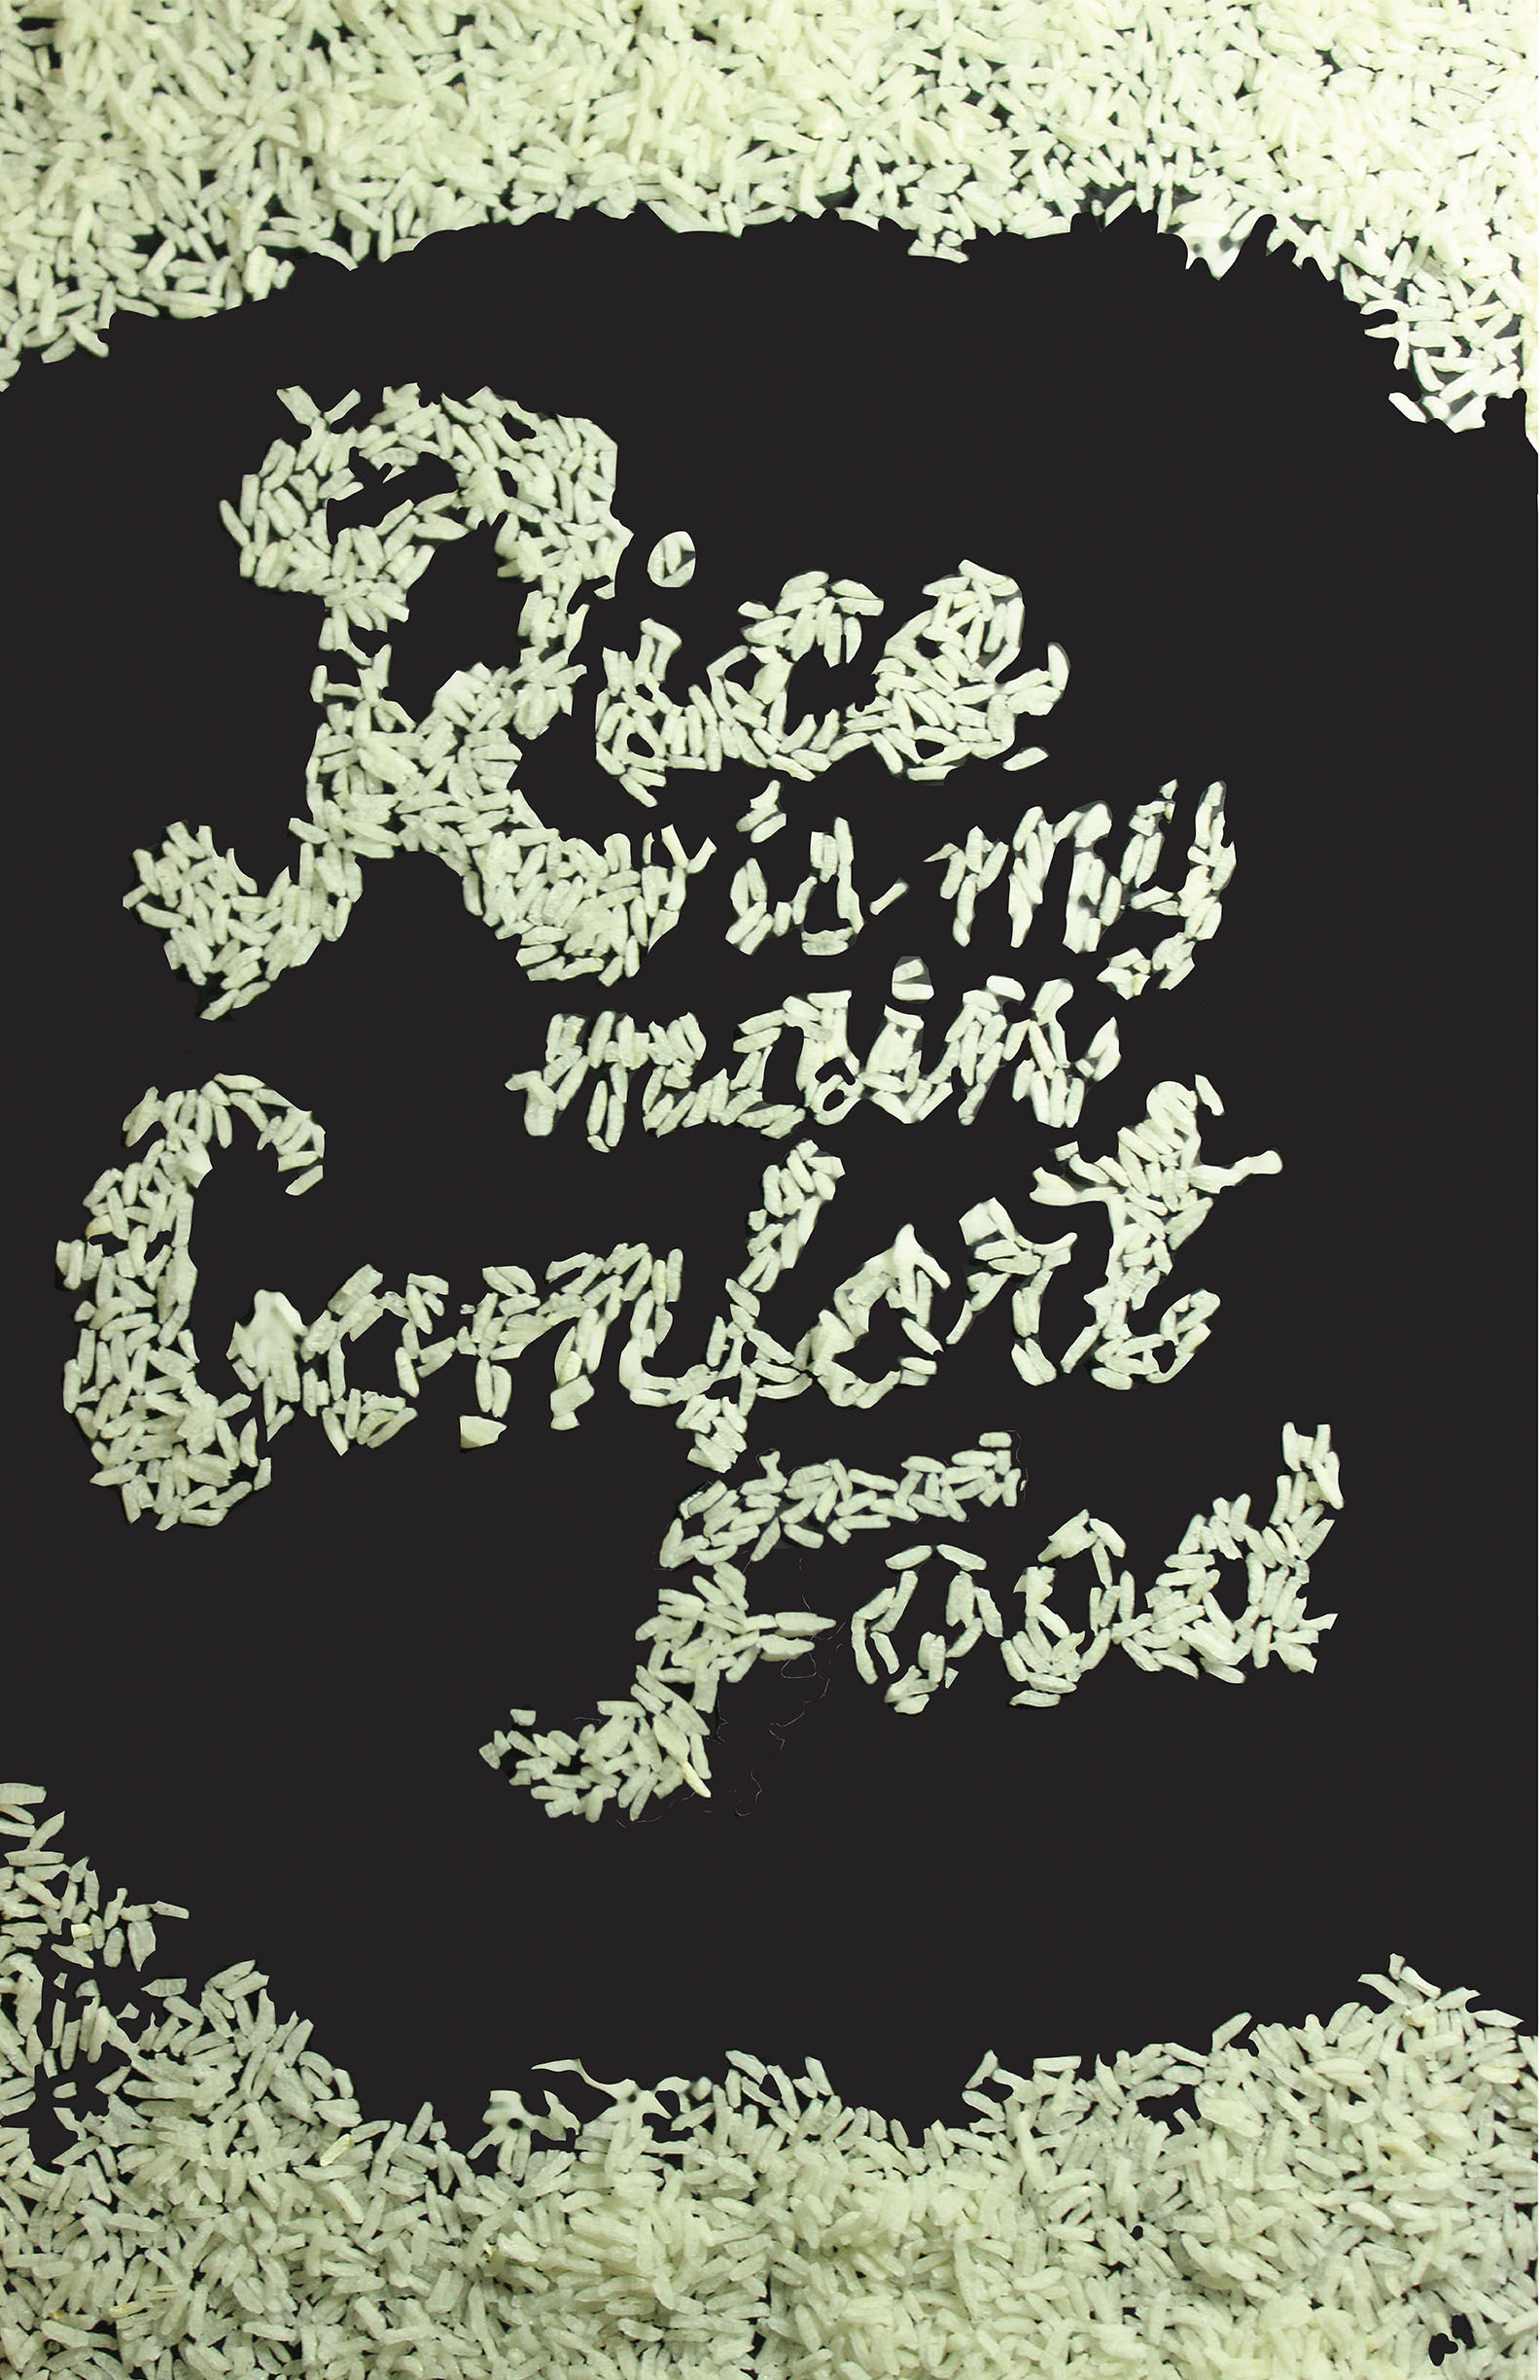 Rice
is my
main
Comfort
Food